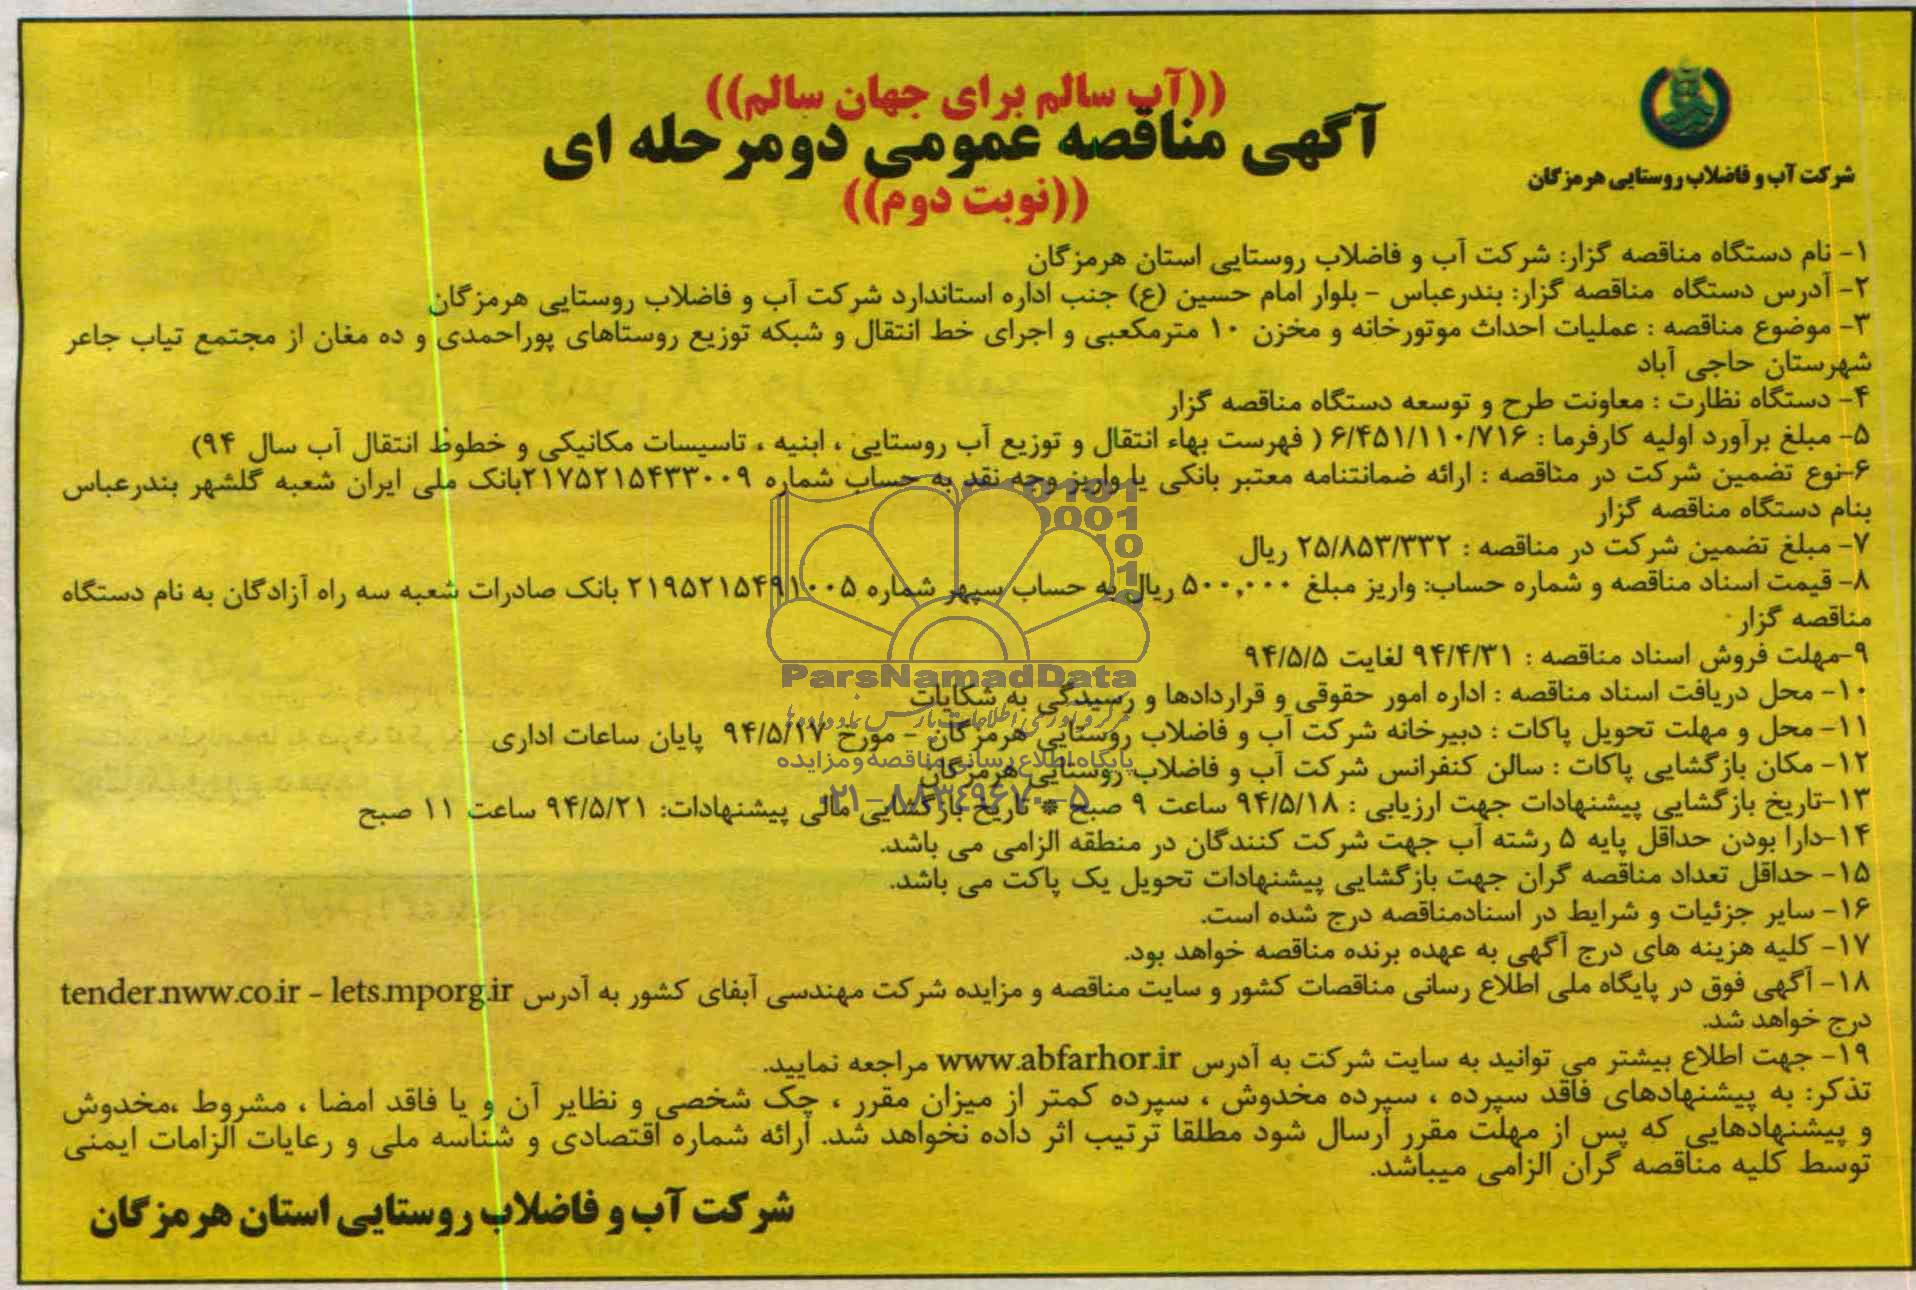 ((آب سالم برای جهان سالم))
آگهی مناقصه عمومی دومرحله ای
((نوبت دوم))
شرکت آب و فاضلاب روستایی هرمزگان
۱- نام دستگاه مناقصه گزار: شرکت آب و فاضلاب روستایی استان هرمزگان
۲- آدرس دستگاه مناقصه گزار: بندرعباس - بلوار امام حسین (ع) جنب اداره استاندارد شرکت آب و فاضلاب روستایی هرمزگان
۳- موضوع مناقصه : عملیات احداث موتورخانه و مخزن ۱۰ مترمکعبی و اجرای خط انتقال و شبکه توزیع روستاهای پوراحمدی و ده مغان از مجتمع تیاب جاعر
شهرستان حاجی آباد
۴- دستگاه نظارت : معاونت طرح و توسعه دستگاه مناقصه گزار
۵- مبلغ برآورد اولیه کارفرما : ۶/۴۵۱/۱۱۰/۷۱۶ ( فهرست بهاء انتقال و توزیع آب روستایی ، ابنیه ، تاسیسات مکانیکی و خطوط انتقال آب سال ۹۴)
۶-نوع تضمین شرکت در مناقصه : ارائه ضمانتنامه معتبر بانکی یا واریز وجه نقد به حساب شماره ۲۱۷۵۲۱۵۴۳۳۰۰۹بانک ملی ایران شعبه گلشهر بندرعباس
بنام دستگاه مناقصه گزار
۷- مبلغ تضمین شرکت در مناقصه : ۲۵/۸۵۳/۳۳۲ ریال
۸- قیمت اسناد مناقصه و شماره حساب: واریز مبلغ ۵۰۰,۰۰۰ ریال به حساب سپهر شماره ۲۱۹۵۲۱۵۴۹۱۰۰۵ بانک صادرات شعبه سه راه آزادگان به نام دستگاه
مناقصه گزار
۹-مهلت فروش اسناد مناقصه : ۹۴/۴/۳۱ لغایت ۹۴/۵/۵
ParsNamadData
۱۰- محل دریافت اسناد مناقصه : اداره امور حقوقی و قراردادها و رسیدگی به شکایات
مرکز فرآوری اطلاعات پارس نماد داده ها
۱۱- محل و مهلت تحویل پاکات : دبیرخانه شرکت آب و فاضلاب روستایی هرمزگان - مورخ ۹۴/۵/۱۷ پایان ساعات اداری
پایگاه اطلاع رسانی مناقصه و مزایده
۱۲- مکان بازگشایی پاکات : سالن کنفرانس شرکت آب و فاضلاب روستایی هرمزگان
۰۲۱-۸۸۳۴۹۶۷۰-۵
۱۳-تاریخ بازگشایی پیشنهادات جهت ارزیابی : ۹۴/۵/۱۸ ساعت ۹ صبح * تاریخ بازگشایی مالی پیشنهادات: ۹۴/۵/۲۱ ساعت ۱۱ صبح
۱۴-دارا بودن حداقل پایه ۵ رشته آب جهت شرکت کنندگان در منطقه الزامی می باشد.
۱۵- حداقل تعداد مناقصه گران جهت بازگشایی پیشنهادات تحویل یک پاکت می باشد.
۱۶- سایر جزئیات و شرایط در اسنادمناقصه درج شده است.
۱۷- کلیه هزینه های درج آگهی به عهده برنده مناقصه خواهد بود.
۱۸- آگهی فوق در پایگاه ملی اطلاع رسانی مناقصات کشور و سایت مناقصه و مزایده شرکت مهندسی آبفای کشور به آدرس tender.nww.co.ir - lets.mporg.ir
درج خواهد شد.
۱۹- جهت اطلاع بیشتر می توانید به سایت شرکت به آدرس www.abfarhor.ir مراجعه نمایید.
تذکر: به پیشنهادهای فاقد سپرده ، سپرده مخدوش ، سپرده کمتر از میزان مقرر ، چک شخصی و نظایر آن و یا فاقد امضا ، مشروط ،مخدوش
و پیشنهادهایی که پس از مهلت مقرر ارسال شود مطلقا ترتیب اثر داده نخواهد شد. ارائه شماره اقتصادی و شناسه ملی و رعایات الزامات ایمنی
توسط کلیه مناقصه گران الزامی میباشد.
شرکت آب و فاضلاب روستایی استان هرمزگان